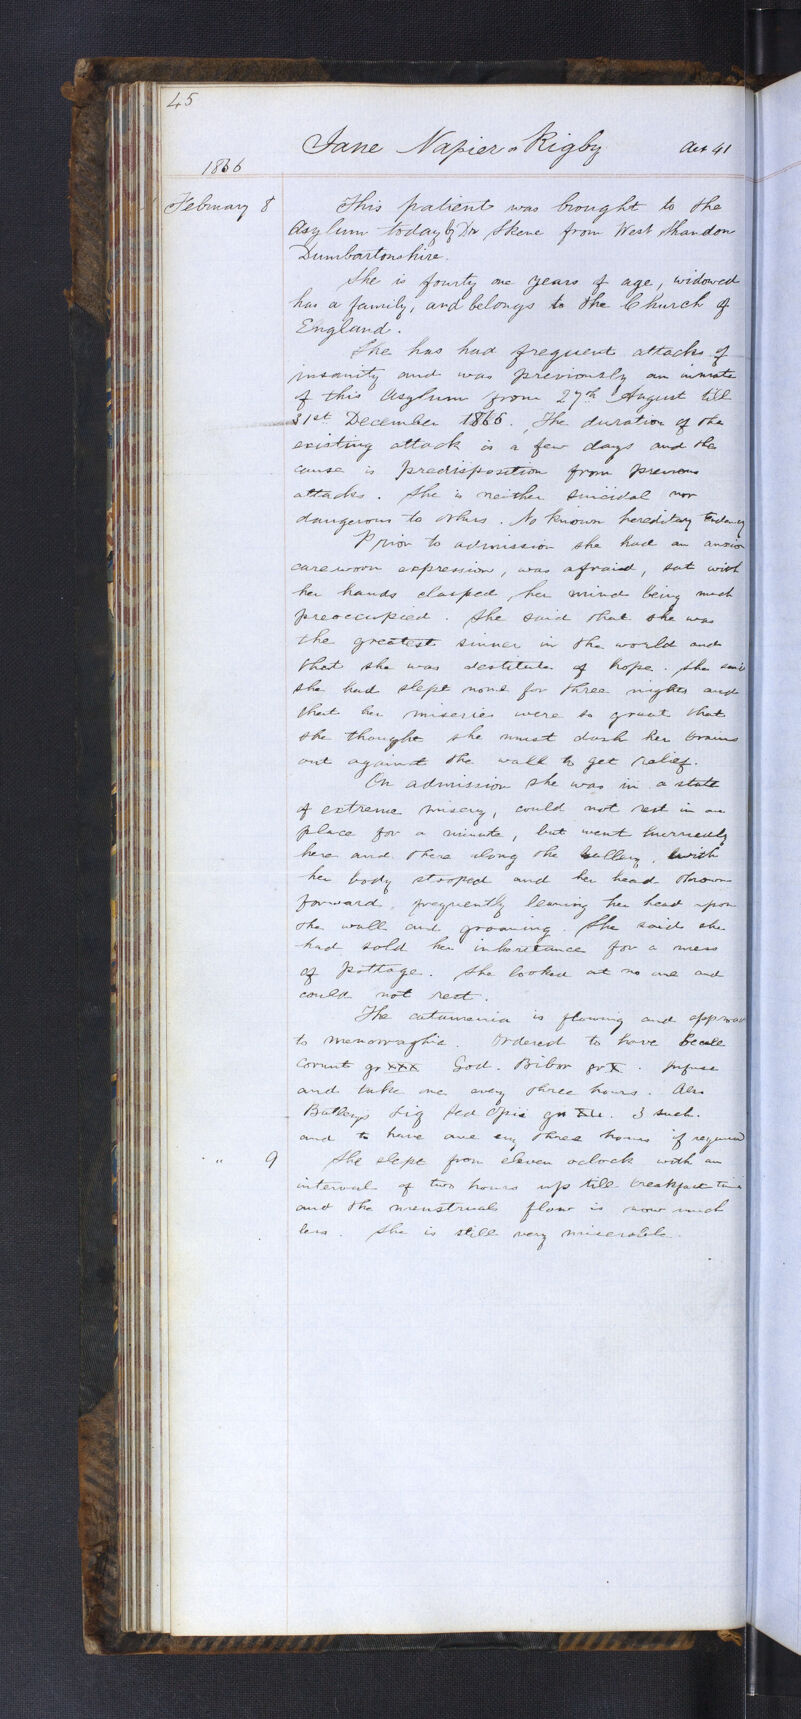 45
Jane Napier or Rigby Aet 41
1866
February 8 This patient was brought to the
Asylum today by Dr Skene from West Shandon
Dumbartonshire.
She is fourty one years of age, widowed
has a family, and belongs to the Church of
England.
She has had frequent attacks of
insanity and was previously an inmate
of this Asylum from 27th August till
31st December 1865. The duration of the
existing attack is a few days and the
cause is predisposition from previous
attacks. She is neither suicidal nor
dangerous to others. No known hereditary tendency
Prior to admission she had an anxious
careworn expression, was afraid, sat with
her hands clasped, her mind being much
preoccupied. She said that she was
the greatest sinner in the world and
that she was destitute of hope. She said
she had slept none for three nights and
that her miseries were so great that
she thought she must dash her brains
out against the wall to get relief.
On admission she was in a state
of extreme misery, could not rest in one
place for a minute, but went hurriedly
here and there along the Gallery, with
her body stooped and her head thrown
forward, frequently leaning her head upon
the wall and groaning. She said she
had sold her inheritance for a mess
of pottage. She looked at no one and
could not rest.
The catamenia is flowing and approach
to menorraghia. Ordered to have Secale
Cornut gr xxx Sod. Bibor gr X. Infuse
and take one every three hours. Also
Batleys Liq Sed Opii 3 such.
and to have one evy three hours if required
" 9 She slept from eleven oclock with an
interval of two hours up till breakfast time
and the menstrual flow is now much
less. She is still very miserable.